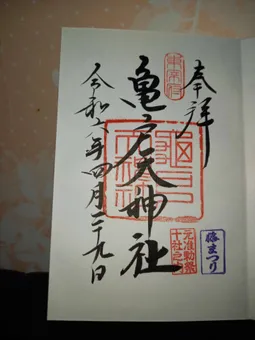 奉拝
東宰府
亀戸天神社
令和六年四月二十九日
元准勅祭
十社之内
藤まつり